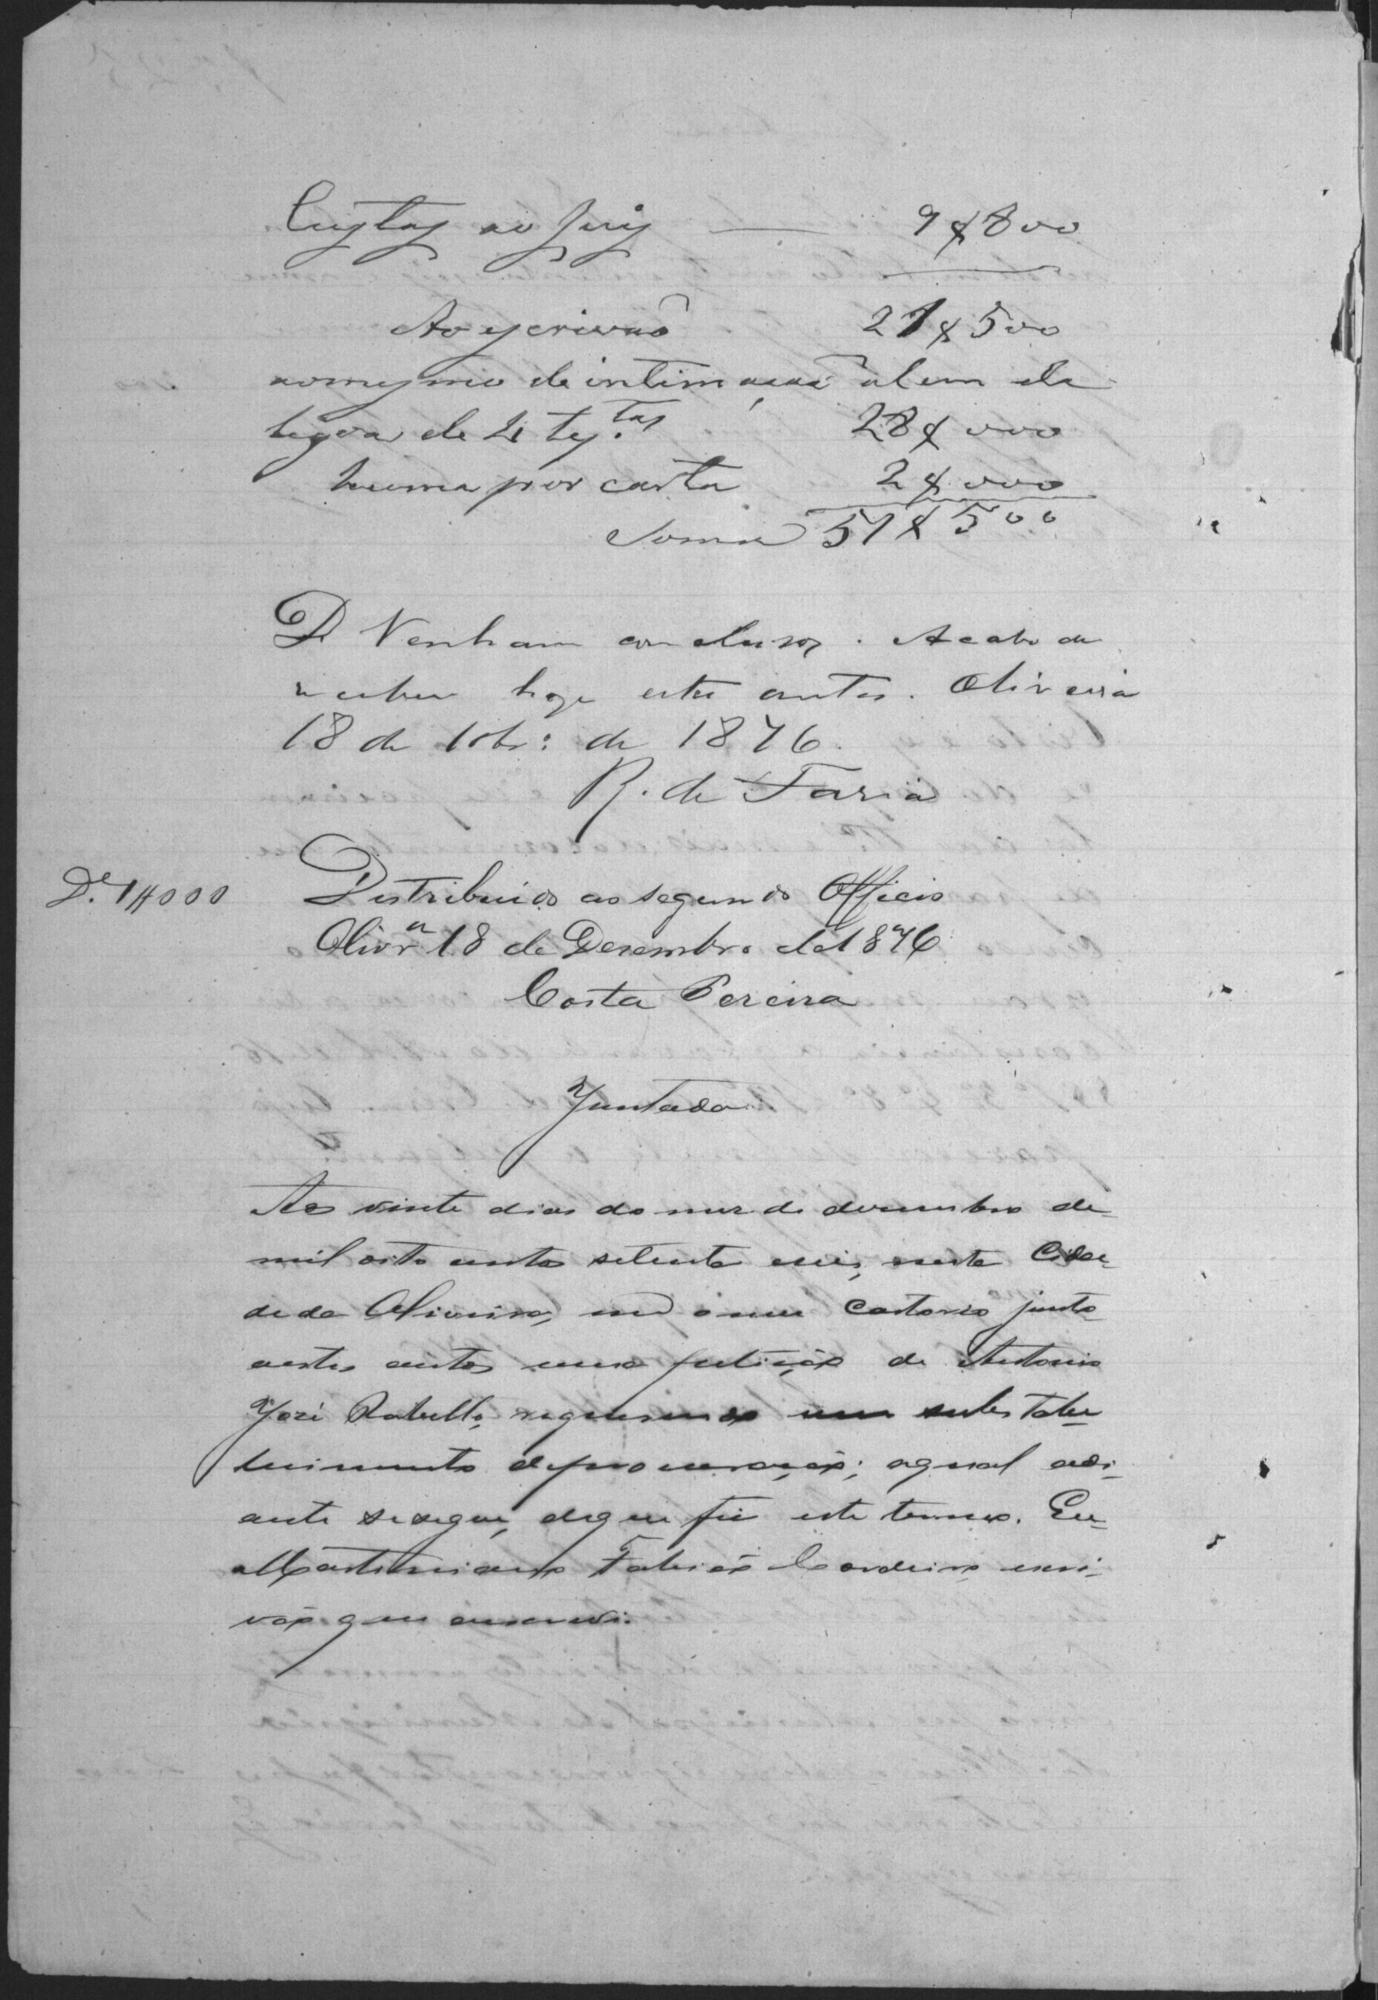 Custas ao Juis 9$800
Ao escrivaõ 21$500
ao mesmo de intimaçaõ alem da
legoa de 4 tes.tas 28$000
huma por carta 2$000
Soma 51$500
D. Venham conclusos. Acabo de
receber hoje estes autos. Oliveira
18 de 10br.º de 1876.
R. de Faria
D.e 1$000 Distribuido ao segundo Officio
Olivr.a 18 de Desembro de 1876
Costa Pereira
Juntada
Aos vinte dias do mez de dezembro de
mil oito centos setenta e seis, nesta Cida-
de de Oliveira, em o meu Cartorio junto
a estes autos uma petição de Antonio
José Rabello, requerendo um substabe-
lecimento de procuração; a qual adi-
ante se segue, de que fiz este termo. Eu
Martiniano Fabião Cordeiro, escri-
vão que escrevi.